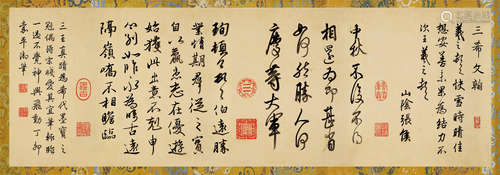 三希文翰
羲之頓首快雪時晴佳
想安善未果為結力不
次王羲之頓首
山陰張侯
中秋不復不得
相還為即甚省
如何然勝人何
慶等大軍
珣頓首頓首伯遠勝
業情期羣從之寶
自以羸患志在優遊
始獲此出意不剋申
分別如昨永為疇古遠
隔嶺嶠不相瞻臨
三王真蹟為希代墨寶之
冠偶得宋牋愛其宜筆輒臨
一過不覺神與飛動丁卯
嘉平御筆